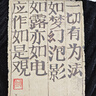 一切有为法
如梦幻泡影
如露亦如电
应作如是觀